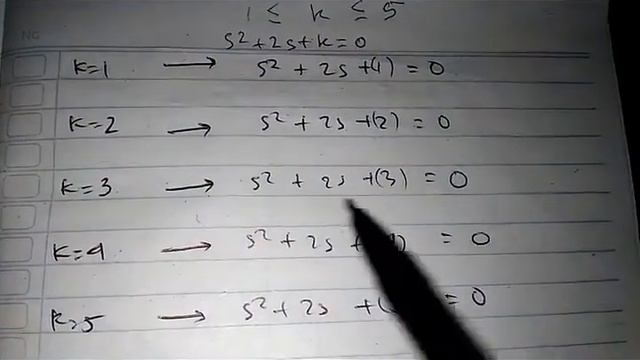 1 ≤ K ≤ 5
NG
s² + 2s + K = 0
K=1 → s² + 2s + (1) = 0
K=2 → s² + 2s + (2) = 0
K=3 → s² + 2s + (3) = 0
K=4 → s² + 2s + ) = 0
K=5 → s² + 2s + ( = 0